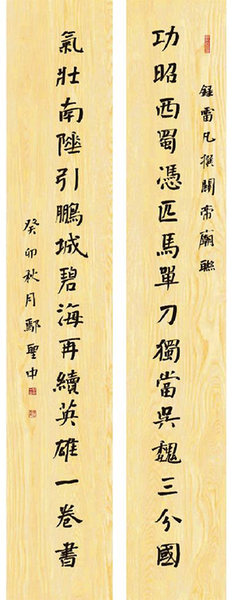 錄雷凡撰關帝廟聯
功昭西蜀憑匹馬單刀獨當吳魏三分國
氣壯南陲引鵬城碧海再續英雄一卷書
癸卯秋月鄢聖中